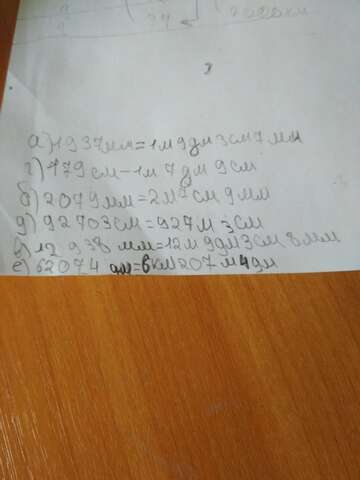 2
а) 1937мм=1м9дм3см7мм
г) 179см-1м 7дм 9см
б) 2079мм=2м7см 9мм
д) 92703см=927м 3см
в) 12 938 мм=12м 9дм3см 8мм
е) 62074 дм=6км207м4дм